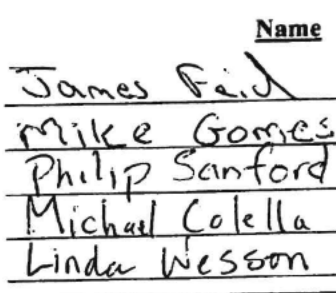 Name
James
Mike Gomes
Philip Sanford
Michael Colella
Linda Wesson